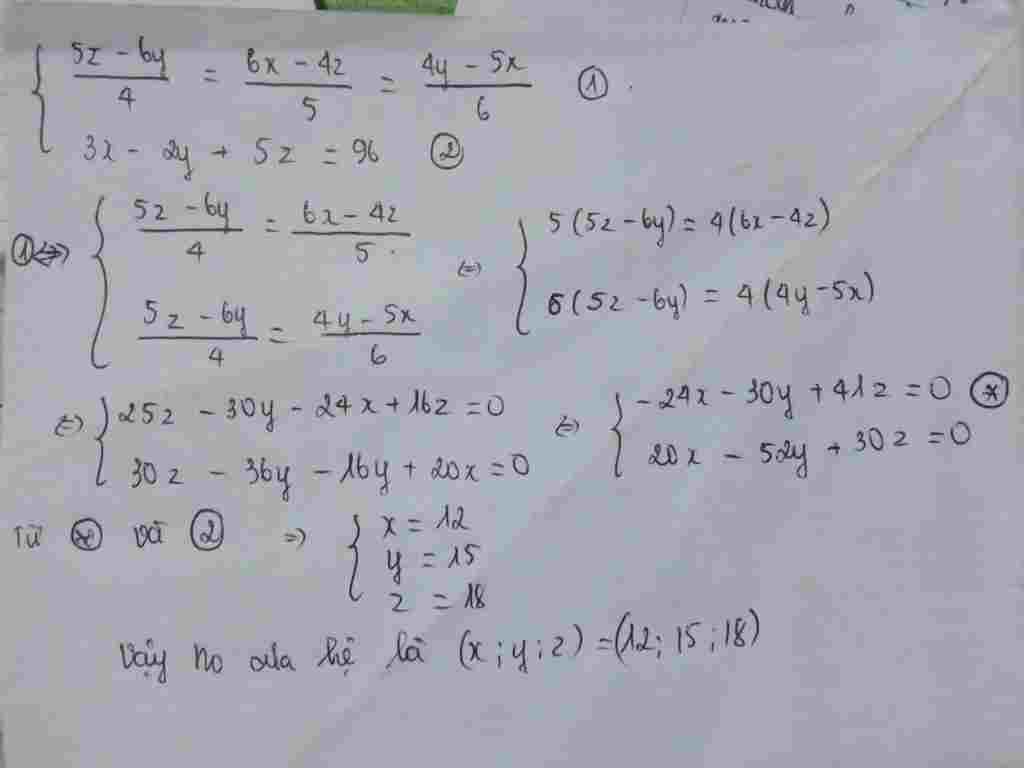 { (5z - 6y)/4 = (6x - 4z)/5 = (4y - 5x)/6 ①
3x - 2y + 5z = 96 ②
① ⇔ { (5z - 6y)/4 = (6x - 4z)/5 (=) { 5(5z - 6y) = 4(6x - 4z)
(5z - 6y)/4 = (4y - 5x)/6 6(5z - 6y) = 4(4y - 5x)
(=) { 25z - 30y - 24x + 16z = 0 (=) { -24x - 30y + 41z = 0 (*)
30z - 36y - 16y + 20x = 0 20x - 52y + 30z = 0
Từ (*) và ② =) { x = 12
y = 15
z = 18
Vậy no của hệ là (x; y; z) = (12; 15; 18)